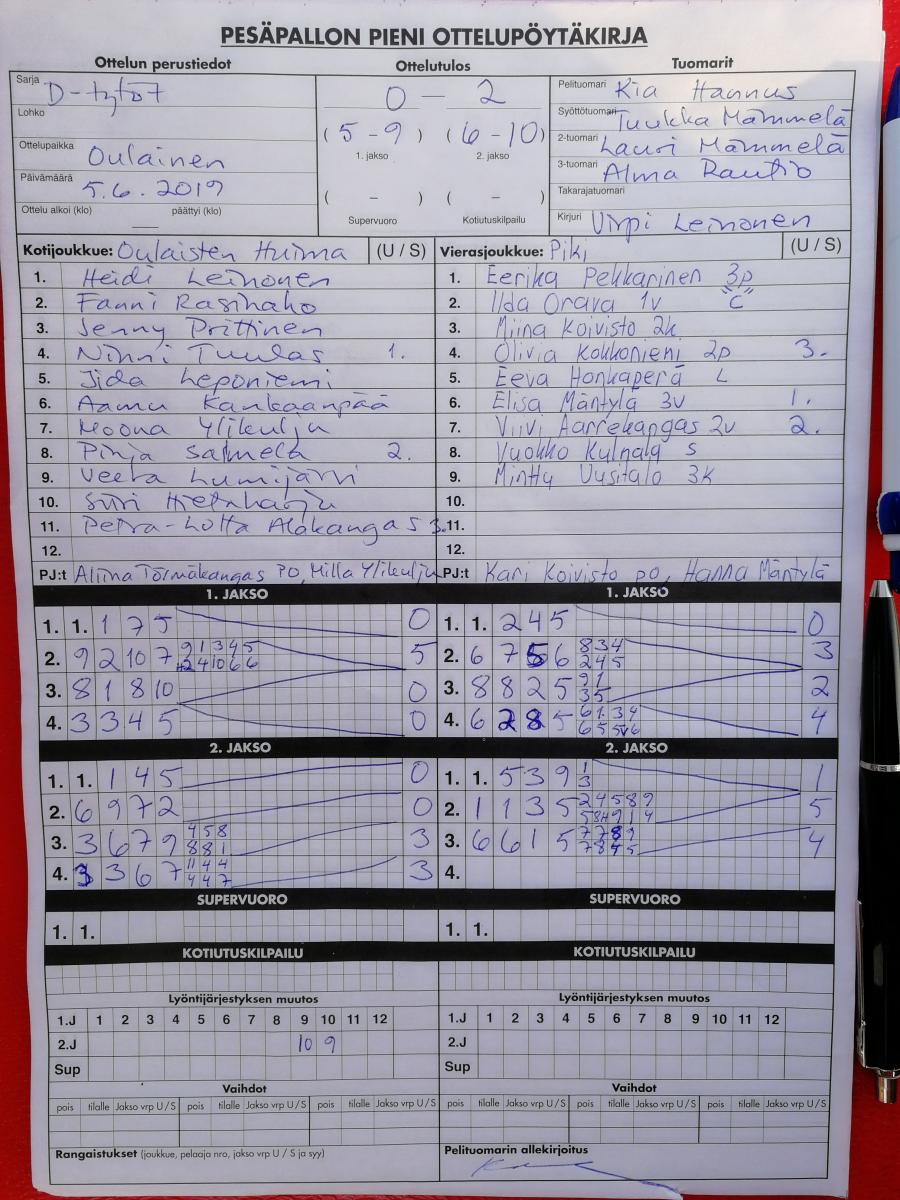 PESÄPALLON PIENI OTTELUPÖYTÄKIRJA
Ottelun perustiedot Ottelutulos Tuomarit
Sarja D-tytöt
Lohko
Ottelupaikka Oulainen
Päivämäärä 5.6.2019
Ottelu alkoi (klo) päättyi (klo)
0 - 2
(5-9) (6-10)
1. jakso 2. jakso
( - ) ( - )
Supervuoro Kotiutuskilpailu
Pelituomari Kia Hannus
Syöttötuomari Tuukka Mämmelä
2-tuomari Lauri Mämmelä
3-tuomari Alma Rautio
Takarajatuomari
Kirjuri Virpi Leinonen
Kotijoukkue: Oulaisten Huima (U / S)
1. Heidi Leinonen
2. Fanni Rasinaho
3. Jenny Prittinen
4. Ninni Tuulas 1.
5. Jida Leponiemi
6. Aamu Kankaanpää
7. Noona Ylikulju
8. Pinja Salmela 2.
9. Veera Lumijärvi
10. Siiri Hietaharju
11. Petra-Lotta Alakangas 3.
12.
PJ:t Aliina Törmäkangas PO, Milla Ylikulju
Vierasjoukkue: Piki (U / S)
1. Eerika Pekkarinen 3p
2. Iida Orava 1v "C"
3. Miina Koivisto 2k
4. Olivia Kokkoniemi 2p 3.
5. Eeva Honkaperä L
6. Elisa Mäntylä 3v 1.
7. Viivi Aarrekangas 2v 2.
8. Vuokko Kulnala S
9. Minttu Uusitalo 3k
10.
11.
12.
PJ:t Kari Koivisto PO, Hanna Mäntylä
1. JAKSO
1. 1. 1 7 5 0
2. 9 2 10 7 9 1 3 4 5 5
2 4 10 6 6
3. 8 1 8 10 0
4. 3 3 4 5 0
1. JAKSO
1. 1. 2 4 5 0
2. 6 7 5 6 8 3 4 3
2 4 5
3. 8 8 2 5 9 1 2
3 5
4. 6 2 8 5 6 1 3 4 4
6 5 5 6
2. JAKSO
1. 1. 1 4 5 0
2. 6 9 7 2 0
3. 3 6 7 9 4 5 8 3
8 8 1
4. 3 3 6 7 11 4 4 3
4 4 7
2. JAKSO
1. 1. 5 3 9 1 1
3
2. 1 1 3 5 2 4 5 8 9 5
3. 6 6 1 5 7 7 8 9 4
7 8 4 5
4.
SUPERVUORO SUPERVUORO
1. 1. 1. 1.
KOTIUTUSKILPAILU KOTIUTUSKILPAILU
Lyöntijärjestyksen muutos Lyöntijärjestyksen muutos
1.J 1 2 3 4 5 6 7 8 9 10 11 12 1.J 1 2 3 4 5 6 7 8 9 10 11 12
2.J 10 9 2.J
Sup Sup
Vaihdot Vaihdot
pois tilalle Jakso vrp U / S pois tilalle Jakso vrp U / S pois tilalle Jakso vrp U / S pois tilalle Jakso vrp U / S pois tilalle Jakso vrp U / S pois tilalle Jakso vrp U / S
Rangaistukset (joukkue, pelaaja nro, jakso vrp U / S ja syy) Pelituomarin allekirjoitus